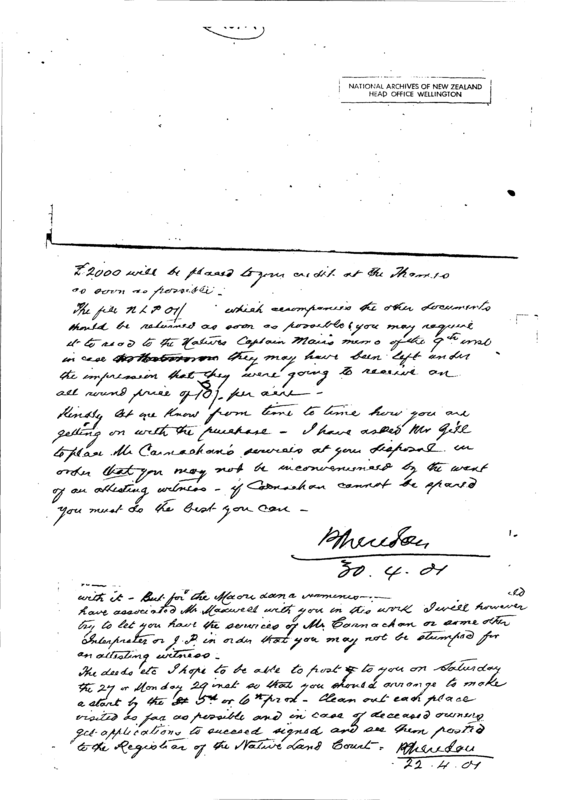 NATIONAL ARCHIVES OF NEW ZEALAND
HEAD OFFICE WELLINGTON
£2000 will be placed to your credit at the Thames
as soon as possible.
The file N.L.P 01/ which accompanies the other documents
should be returned as soon as possible & you may require
it to read to the Natives Captain Mair's memo of the 9th inst
in case they may have been left under
the impression that they were going to receive an
all round price of per acre -
Kindly let me know from time to time how you are
getting on with the purchase - I have asked Mr Gill
to place Mr Carnachan's services at your disposal in
order that you may not be inconvenienced by the want
of an attesting witness - if Carnachan cannot be spared
you must do the best you can -
P Sheridan
30. 4. 01
with it - But for the Maori
have associated Mr Maxwell with you in this work I will however
try to let you have the services of Mr Carnachan or some other
Interpreter or J.P. in order that you may not be stumped for
an attesting witness -
The deeds etc I hope to be able to post to you on Saturday
the 27 or Monday 29 inst so that you should arrange to make
a start by the 5th or 6th prox - Clean out each place
visited as far as possible and in case of deceased owners
get applications to succeed signed and see them posted
to the Registrar of the Native Land Court. P Sheridan
22. 4. 01